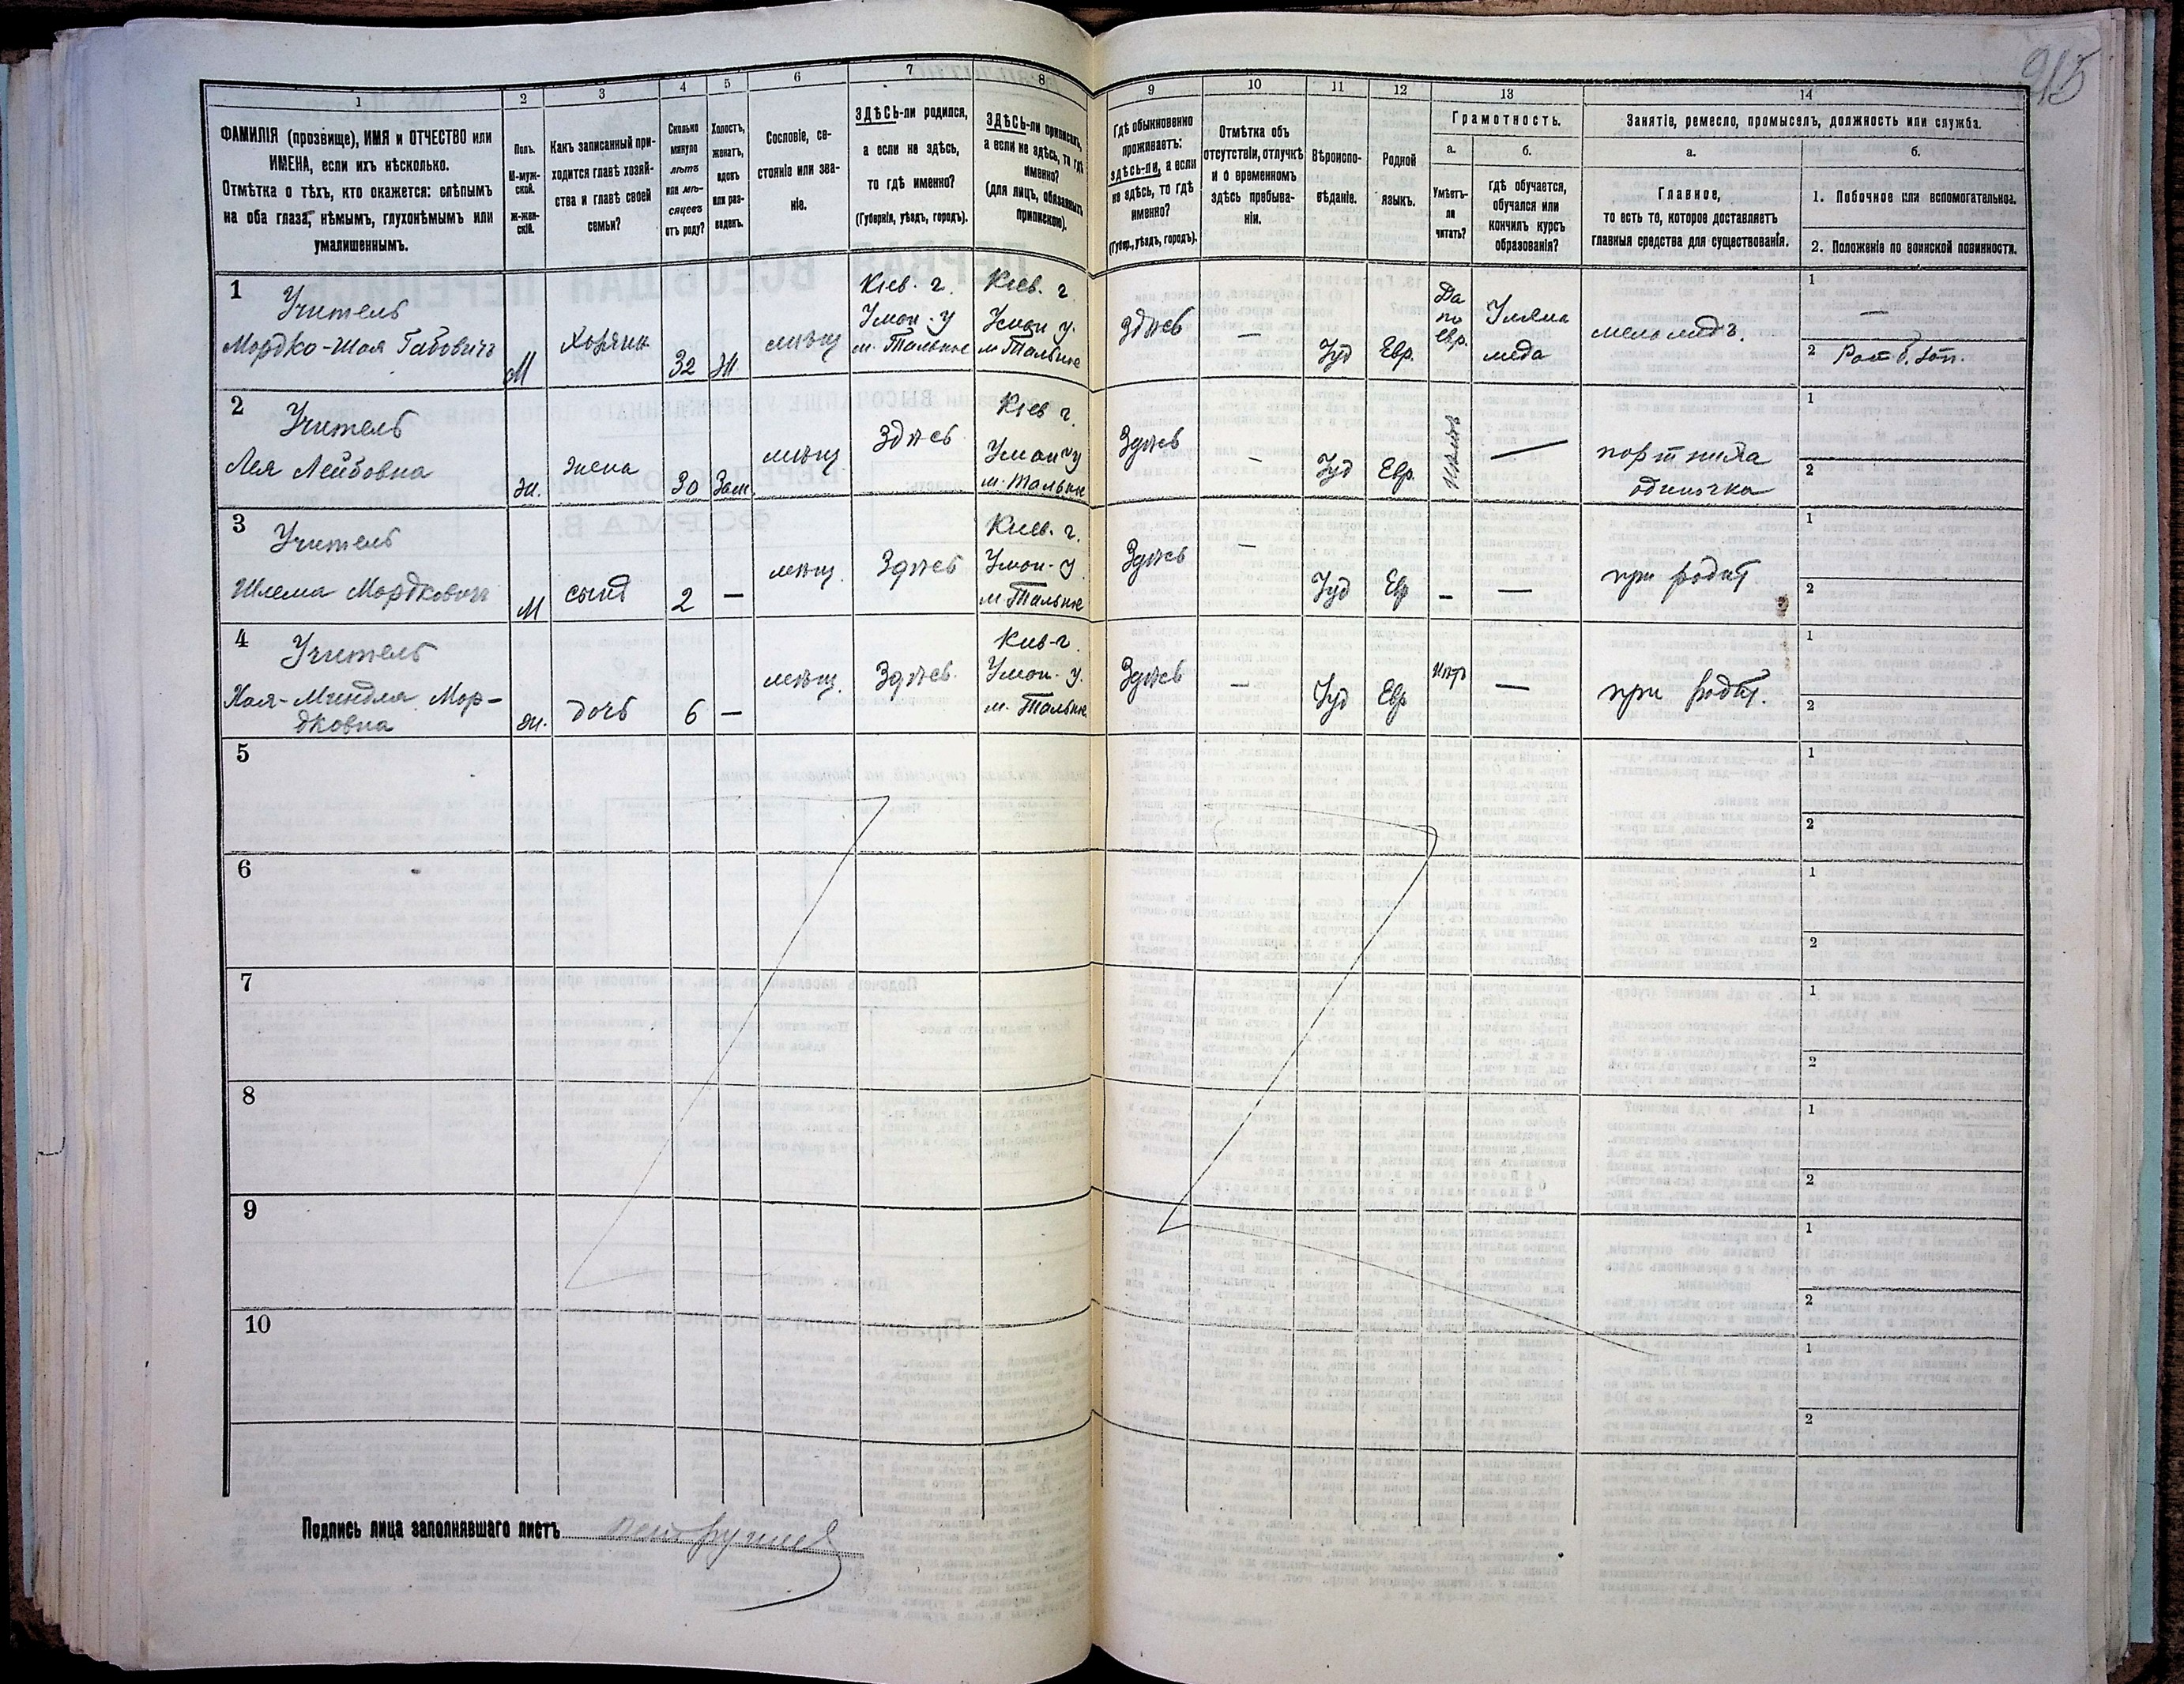 915
1
2
3
4
5
6
7
8
9
10
11
12
13
14
ФАМИЛІЯ (прозвище), ИМЯ и ОТЧЕСТВО или
ИМЕНА, если ихъ нѣсколько.
Отмѣтка о тѣхъ, кто окажется: слѣпымъ
на оба глаза, нѣмымъ, глухонѣмымъ или
умалишеннымъ.
Полъ.
М-муж-
ской.
Ж-жен-
скій.
Какъ записанный при-
ходится главѣ хозяй-
ства и главѣ своей
семьи?
Сколько
минуло
лѣтъ
или мѣ-
сяцевъ
отъ роду?
Холостъ,
женатъ,
вдовъ
или раз-
веденъ.
Сословіе, со-
стояніе или зва-
ніе.
ЗДѢСЬ-ли родился,
а если не здѣсь,
то гдѣ именно?
(Губернія, уѣздъ, городъ).
ЗДѢСЬ-ли приписанъ,
а если не здѣсь, то гдѣ
именно?
(для лицъ, обязанныхъ
припискою).
Гдѣ обыкновенно
проживаетъ:
здѣсь-ли, а если
не здѣсь, то гдѣ
именно?
(Губер., уѣздъ, городъ).
Отмѣтка объ
отсутствіи, отлучкѣ
и о временномъ
здѣсь пребыва-
ніи.
Вѣроиспо-
вѣданіе.
Родной
языкъ.
Грамотность.
а.
Умѣетъ-
ли
читать?
б.
гдѣ обучается,
обучался или
кончилъ курсъ
образованія?
Занятіе, ремесло, промыселъ, должность или служба.
а.
Главное,
то есть то, которое доставляетъ
главныя средства для существованія.
б.
1. Побочное или вспомогательное.
2. Положеніе по воинской повинности.
1
Учитель
Мордко-Шая Габовичъ
М
Хозяин
32
Ж
мѣщ
Кіев. г.
Уман. у
м. Тальное
Кіев. г.
Уман у.
м Тальное
Здѣсь
—
Іуд
Евр.
Да
по
евр.
меламедъ.
1
—
2
2
Учитель
Лея Лейбовна
Ж.
жена
30
Зам.
мѣщ
Здѣсь
Кіев г.
Уман у
м. Тальн
Здѣсь
—
Іуд
Евр.
—
портниха
одиночка
1
2
3
Учитель
Шлема Мордкович
М
сынъ
2
—
мѣщ.
Здѣсь
Кіев. г.
Уман. у.
м Тальное
Здѣсь
—
Іуд
Евр
—
—
при родит
1
2
4
Учитель
Хая-Миндля Мор-
дковна
Ж.
дочь
6
—
мѣщ.
Здѣсь.
Кив-г.
Уман. у.
м. Тальное
Здѣсь
—
Іуд
Евр
нѣтъ
—
при родит.
1
2
5
1
2
6
1
2
7
1
2
8
1
2
9
1
2
10
1
2
Подпись лица заполнявшаго листъ